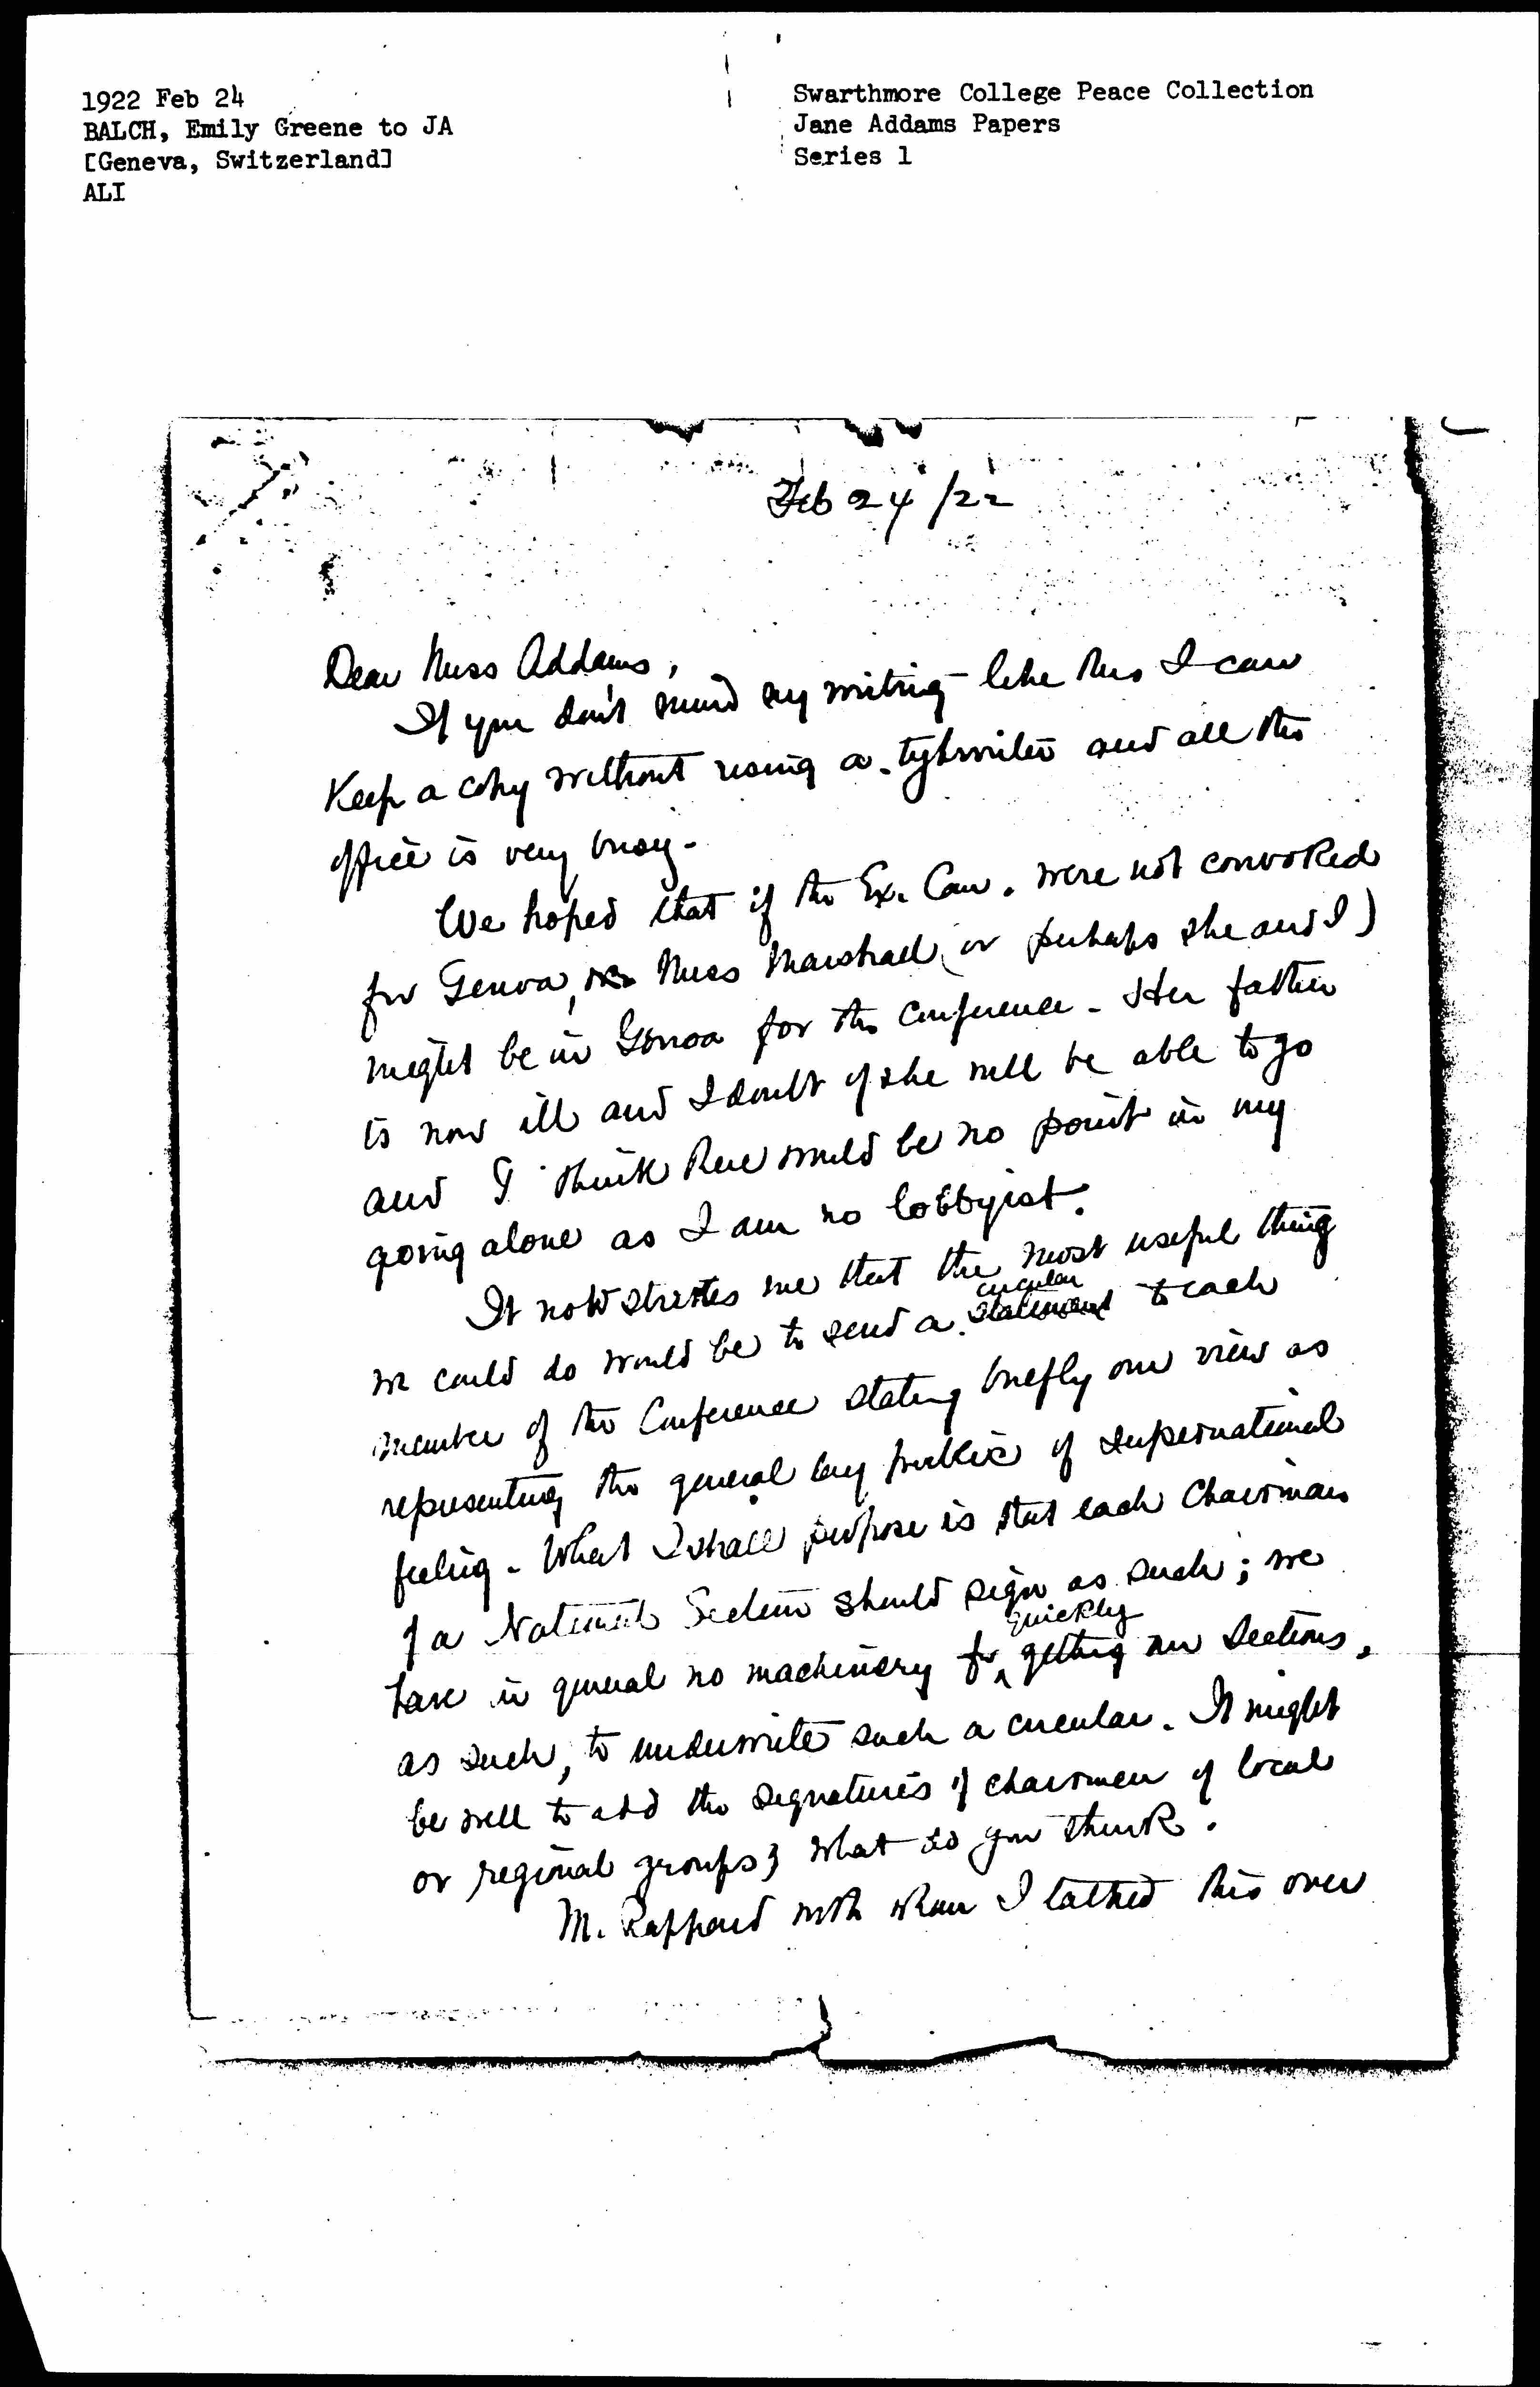 1922 Feb 24
BALCH, Emily Greene to JA
[Geneva, Switzerland]
ALI
Swarthmore College Peace Collection
Jane Addams Papers
Series 1
Feb 24/22
Dear Miss Addams,
If you don't mind my writing like this I can
keep a copy without using a typewriter and all the
office is very busy.
We hoped that if the Ex. Com. were not convoked
for Genoa, Miss Marshall (or perhaps she and I)
might be in Genoa for the Conference. Her father
is now ill and I doubt if she will be able to go
and I think there would be no point in my
going alone as I am no lobbyist.
It now strikes me that the most useful thing
we could do would be to send a statement circular to each
member of the Conference stating briefly our view as
representing the general lay public of supernational
feeling. What I shall propose is that each Chairman
of a National Section should sign as such; we
have in general no machinery for quickly getting our Sections,
as such, to underwrite such a circular. It might
be well to add the signatures of chairmen of local
or regional groups; what do you think.
M. Rappard with whom I talked this over